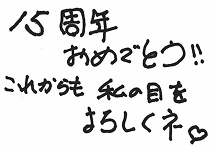 15周年
おめでとう!!
これからも 私の目を
よろしくネ♡